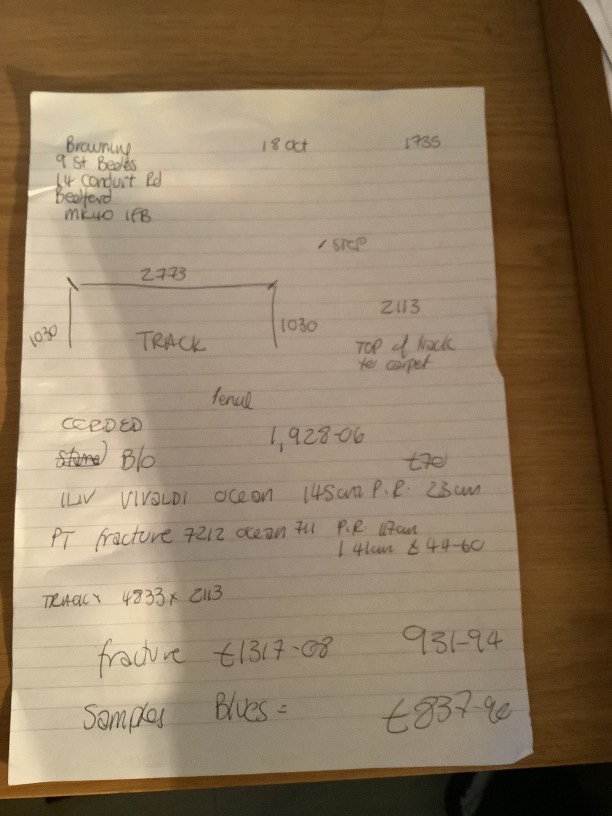 Browning 18 Oct 1735
9 St Bedes
14 Conduit Rd
Bedford
MK40 1FB
1 STEP
2773
1030 TRACK 1030
2113
TOP of track
to carpet
CORDED
1,928-06
B/O £70
ILIV VIVALDI OCEAN 145cm P.R. 23cm
PT fracture 7212 ocean 711 P.R 117cm
141cm £44-60
TRACK 4833 x 2113
fracture £1317-08 931-94
Samples Blues = £837-90